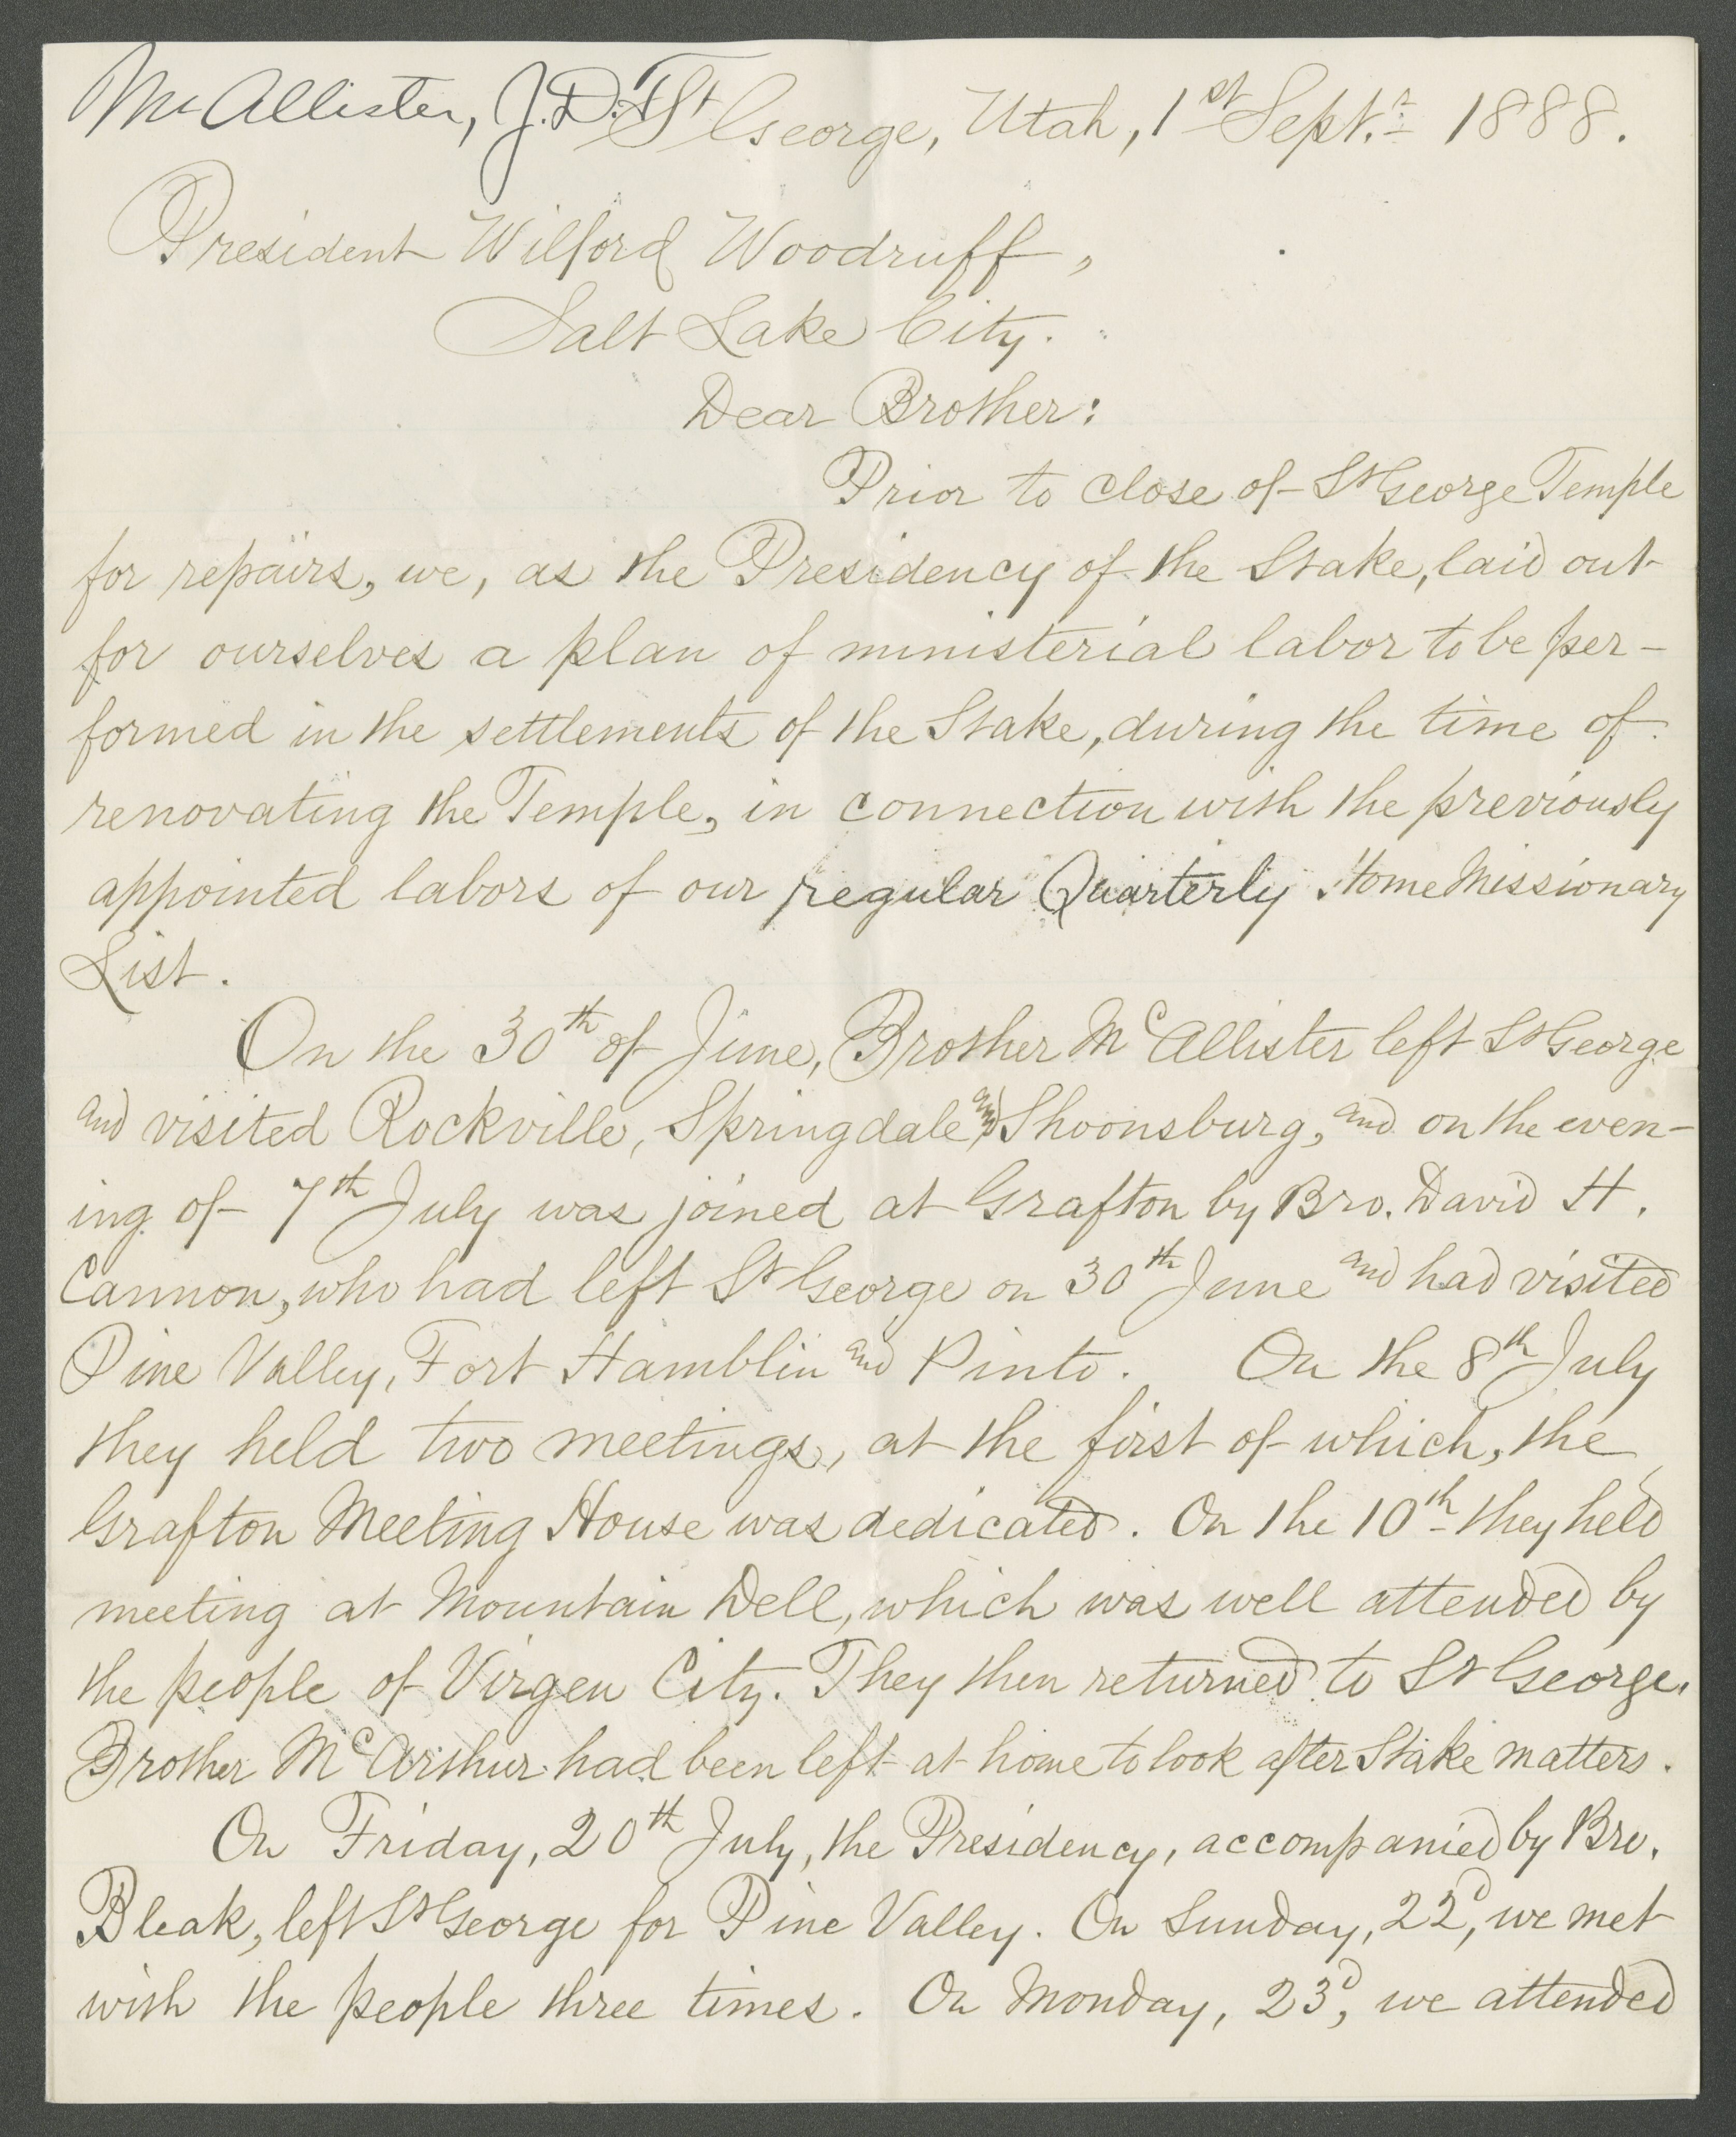 McAllister, J.D.T.
St George, Utah, 1st Sept.r 1888.
President Wilford Woodruff,
Salt Lake City.
Dear Brother:
Prior to close of St George Temple
for repairs, we, as the Presidency of the Stake, laid out
for ourselves a plan of ministerial labor to be per-
formed in the settlements of the Stake, during the time of
renovating the Temple, in connection with the previously
appointed labors of our regular Quarterly Home Missionary
List.
On the 30th of June, Brother McAllister left St George
and visited Rockville, Springdale and Shoonsburg, and on the even-
ing of 7th July was joined at Grafton by Bro. David H.
Cannon, who had left St George on 30th June and had visited
Pine Valley, Fort Hamblin and Pinto. On the 8th July
they held two meetings, at the first of which, the
Grafton Meeting House was dedicated. On the 10th they held
meeting at Mountain Dell, which was well attended by
the people of Virgen City. They then returned to St George.
Brother McArthur had been left at home to look after Stake matters.
On Friday, 20th July, the Presidency, accompanied by Bro.
Bleak, left St George for Pine Valley. On Sunday, 22d, we met
with the people three times. On Monday, 23d, we attended